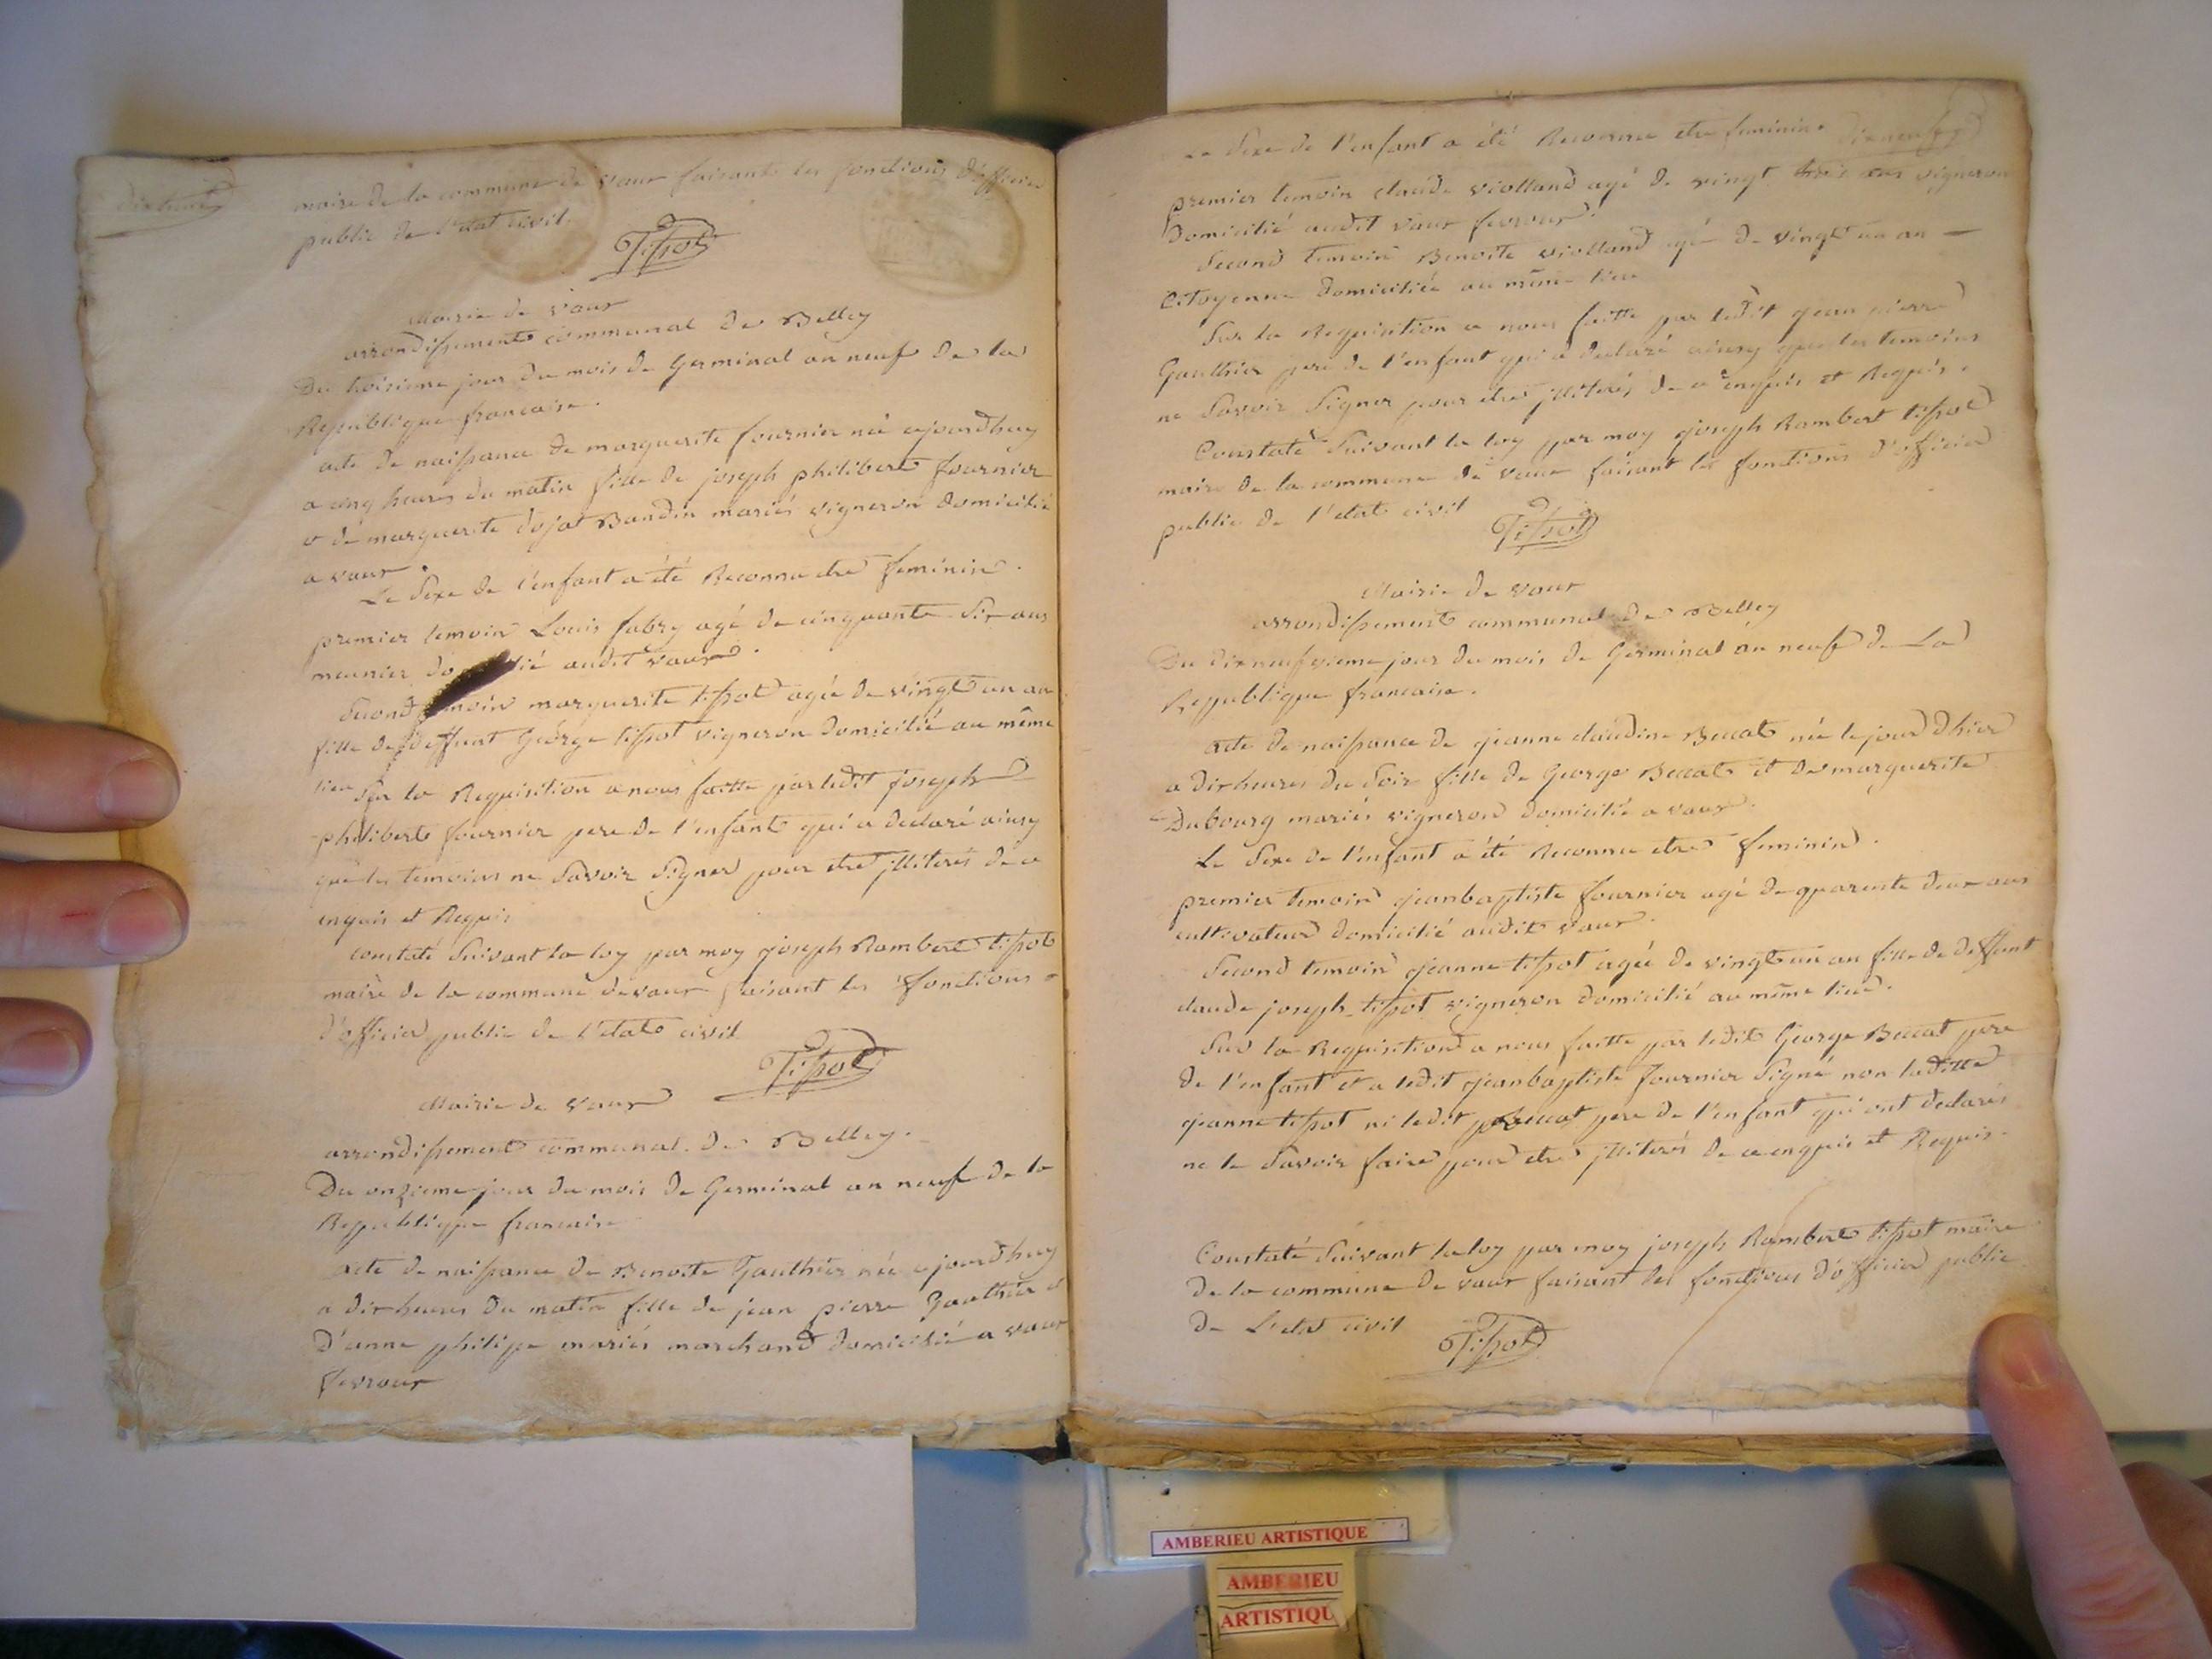 dixhuit
maire de la commune de vaux faisant les fonctions d'officier
public de l'etat civil.
Tissot
Mairie de vaux
arrondissement communal de Belley
Du troisieme jour du mois de Germinal an neuf de la
Republique francaise.
acte de naissance de marguerite fournier née ajourdhuy
a cinq heures du matin fille de joseph philibert fournier
& de marguerite dojat Bandin mariés vigneron domicilié
a vaux.
Le Sexe de l'enfant a été Reconnu etre feminin.
premier temoin Louis fabry agé de cinquante Six ans
meunier audit vaux.
Second marguerite tissot agée de vingt un an
fille de deffunt George tissot vigneron domicilié au même
lieu
Sur la Requisition a nous faitte par ledit joseph
philibert fournier pere de l'enfant qui a declaré ainsy
que les temoins ne Savoir Signer pour etre jlliterés de ce
enquis et Requis
constaté Suivant la loy par moy joseph Rambert tissot
maire de la commune de vaux faisant les fonctions
d'officier public de l'etat civil
Tissot
Mairie de vaux
arrondissement communal. de Belley.
Du onzieme jour du mois de Germinal an neuf de la
Republique francaise
acte de naissance de Benoite Gauthier née ajourdhuy
a dix heures du matin fille de jean pierre Gauthier et
d'anne philipe mariés marchand domicilié a vaux
fevroux
dixneuf
Le Sexe de l'enfant a été Reconnu etre feminin.
premier temoin claude violland agé de vingt trois ans vigneron
domicilié audit vaux fevroux.
Second temoin Benoite violland agé de vingt un an —
Citoyenne domiciliée au même lieu
Sur la Requisition a nous faitte par ledit jean pierre
Gauthier pere de l'enfant qui a declaré ainsy que les temoins
ne Savoir Signer pour etre jlliterés de ce enquis et Requis.
Constaté Suivant la loy par moy joseph Rambert tissot
maire de la commune de vaux faisant les fonctions d'officier
public de l'etat civil
Tissot
Mairie de vaux
arrondissement communal de Belley
Du dixneufvieme jour du mois de Germinal an neuf de La
Republique francaise.
acte de naissance de jeanne claudine Beccat née le jour d'hier
a dix heures du Soir fille de George Beccat et de marguerite
Dubourg mariés vigneron domicilié a vaux.
Le Sexe de l'enfant a été Reconnu etre feminin.
premier temoin jeanbaptiste fournier agé de quarente deux ans
cultivateur domicilié audit vaux.
Second temoin jeanne tissot agée de vingt un an fille de deffunt
claude joseph tissot vigneron domicilié au même lieu.
Sur la Requisition a nous faitte par ledit George Beccat pere
de l'enfant et a ledit jeanbaptiste fournier Signé non laditte
jeanne tissot ni ledit Beccat pere de l'enfant qui ont declarés
ne le Savoir faire pour etre jlliterés de ce enquis et Requis.
Constaté Suivant la loy par moy joseph Rambert tissot maire
de la commune de vaux faisant les fonctions d'officier public
de L'etat civil
Tissot
AMBERIEU ARTISTIQUE
AMBERIEU
ARTISTIQU